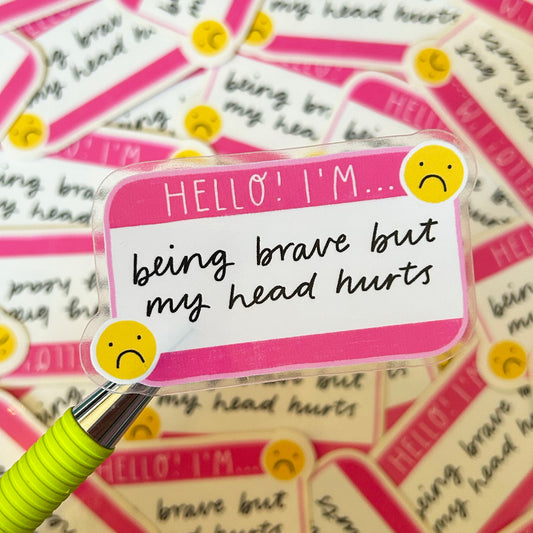 HELLO! I'M...
being brave but
my head hurts